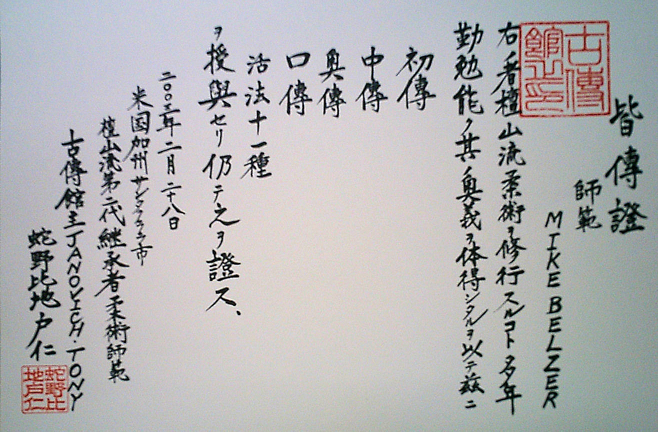 皆傳證
師範
MIKE BELZER
古傳館之印
右ノ者檀山流柔術ヲ修行スルコト多年
勤勉能ク其ノ奥義ヲ体得シタルヲ以テ茲ニ
初傳
中傳
奥傳
口傳
活法十一種
ヲ授與セリ仍テ之ヲ證ス、
二〇〇三年二月二十八日
米国加州サンタクララ市
檀山流第二代継承者柔術師範
古傳館主JANOVICH・TONY
蛇野比地戸仁
蛇野比地戸仁